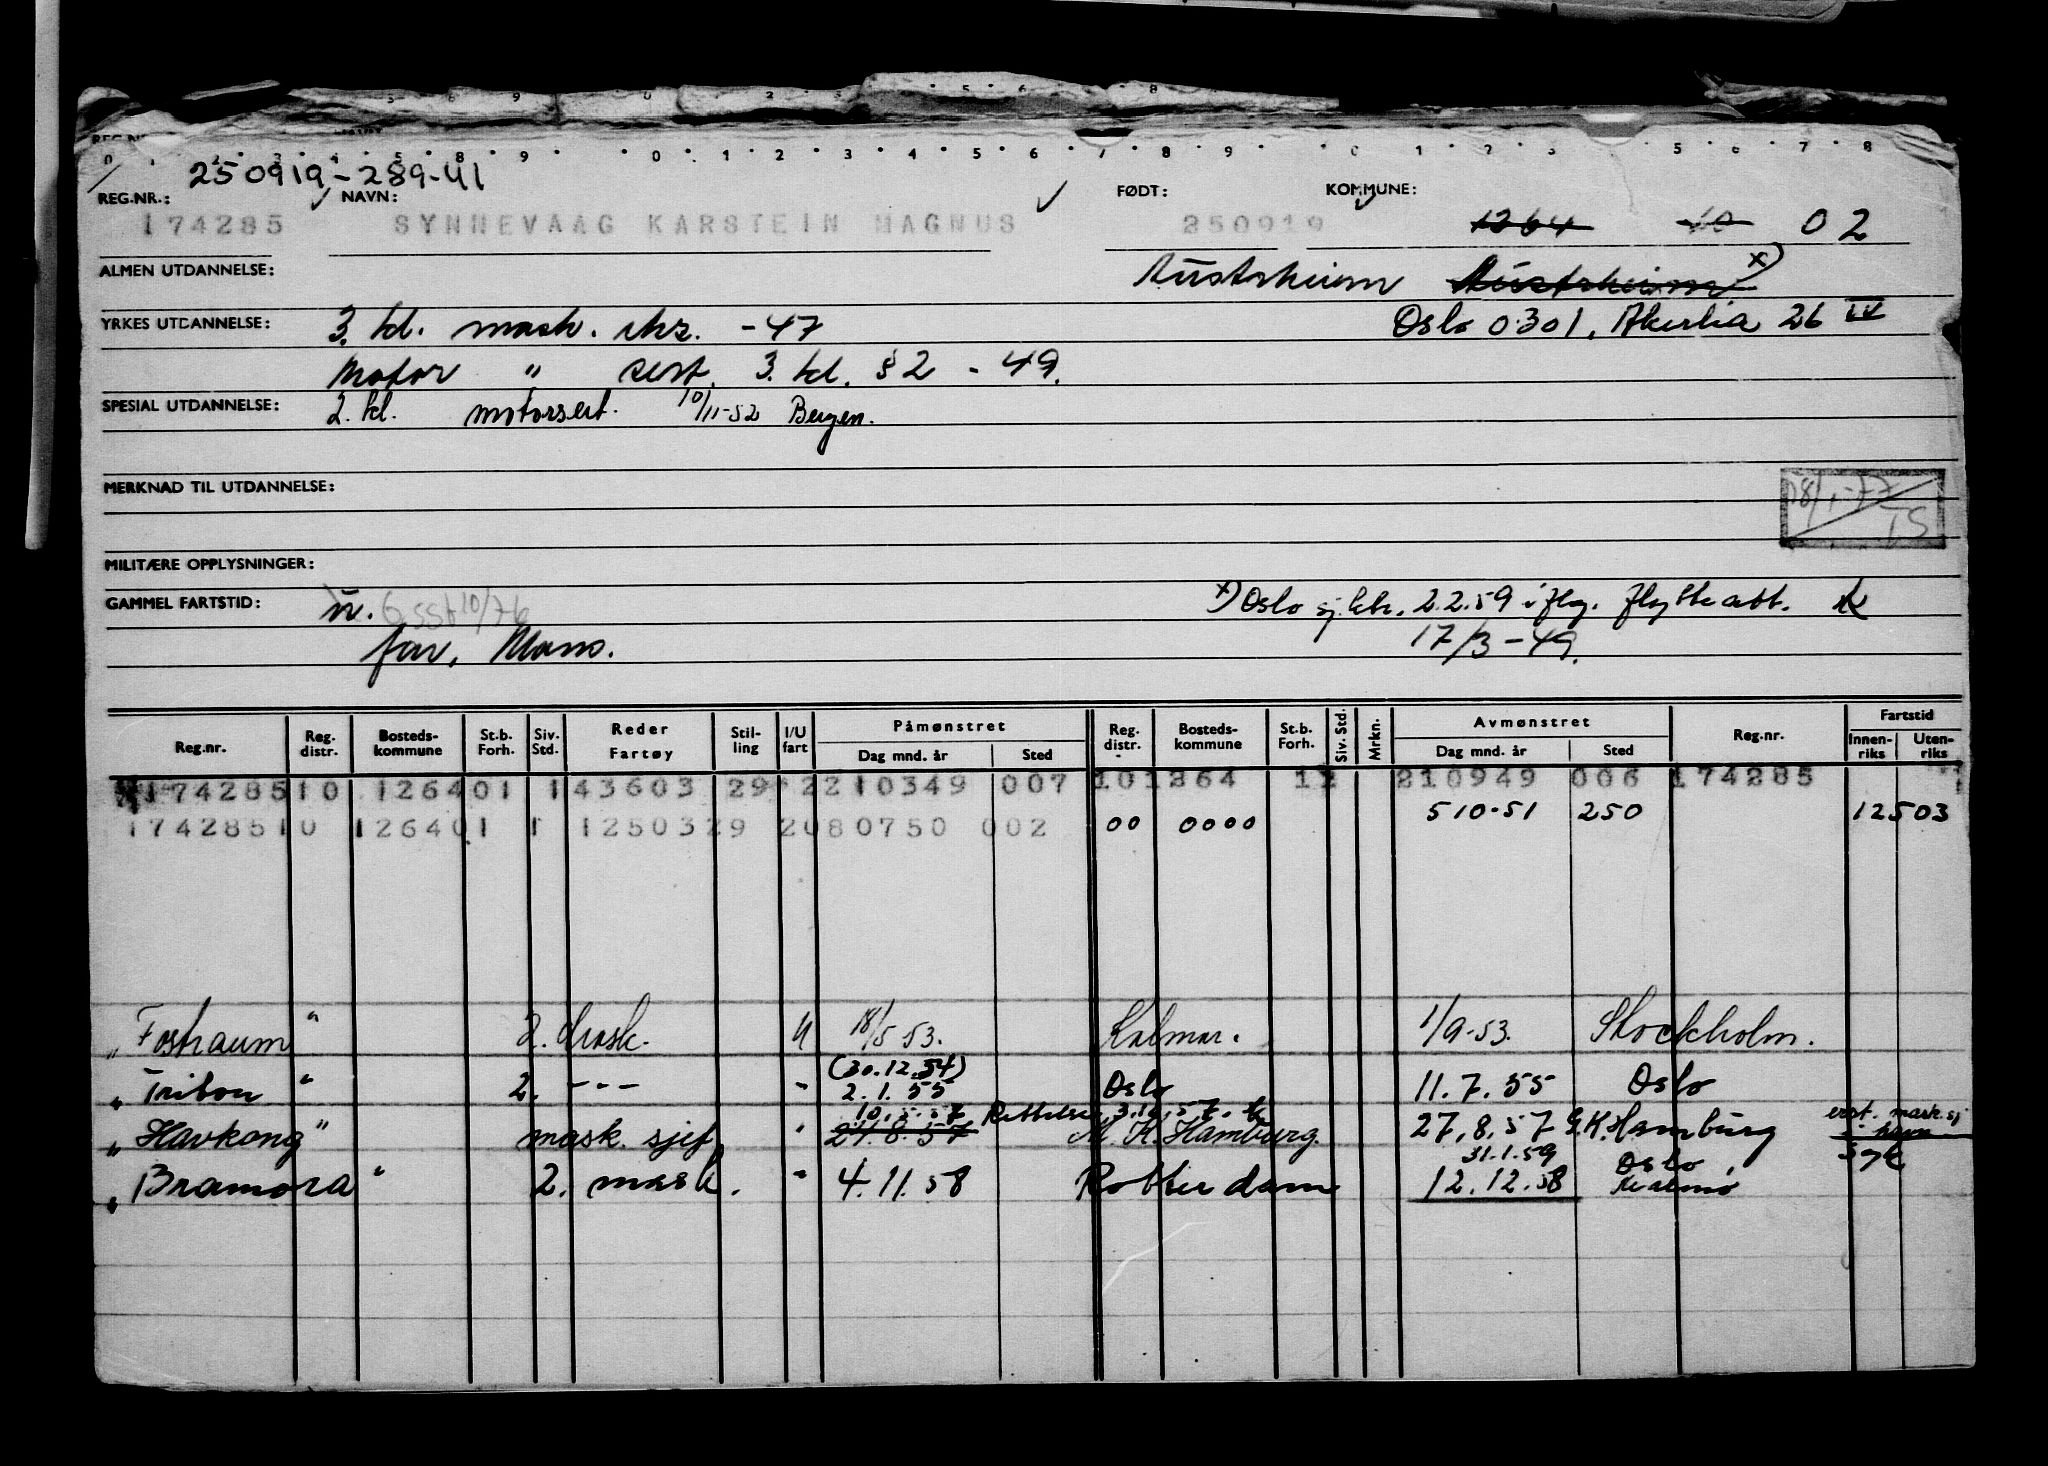 250919-289-41
REG.NR.: NAVN: FØDT: KOMMUNE:
174285 SYNNEVAAG KARSTEIN MAGNUS 250919 1264 10 02
ALMEN UTDANNELSE: Austrheim Austrheim x)
YRKES UTDANNELSE: 3. kl. mask. -47 Oslo 0301, Akerlia 26 IV
Motor " sert. 3. kl. §2 - 49.
SPESIAL UTDANNELSE: 2. kl. motorsert. 10/11-52 Bergen.
MERKNAD TIL UTDANNELSE:
18/1-77
TS
MILITÆRE OPPLYSNINGER:
GAMMEL FARTSTID: x) Oslo sj.ktr. 2.2.59 iflg. flytteatt.
far, Mons. 17/3-49.
Reg.nr. Reg. distr. Bosteds-kommune St.b. Forh. Siv. Std. Reder Fartøy Stil-ling I/U fart Påmønstret Dag mnd. år Sted Reg. distr. Bosteds-kommune St.b. Forh. Siv. Std. Mrkn. Avmønstret Dag mnd. år Sted Reg.nr. Fartstid Innen-riks Uten-riks
174285 10 126401 1 43603 29 2210349 007 101264 11 210949 006 174285
510-51 250 12503
174285 10 126401 1 125032 9 2080750 002 00 0000
" Fosraum " 2. mask. U 18/5 53. Kalmar. 1/9-53. Stockholm.
(30.12.54)
" Triton " 2. --- " 2.1.55 Oslo 11.7.55 Oslo
10.5.57 Rettelse 3.10.57.
" Havkong " mask. sjef " 27.8.57 M.K. Hamburg. 27.8.57 G.K. Hamburg erst. mask.sj i havn
31.1.59 Oslo Syk
" Bramora " 2. mask. " 4.11.58 Rotterdam 12.12.58